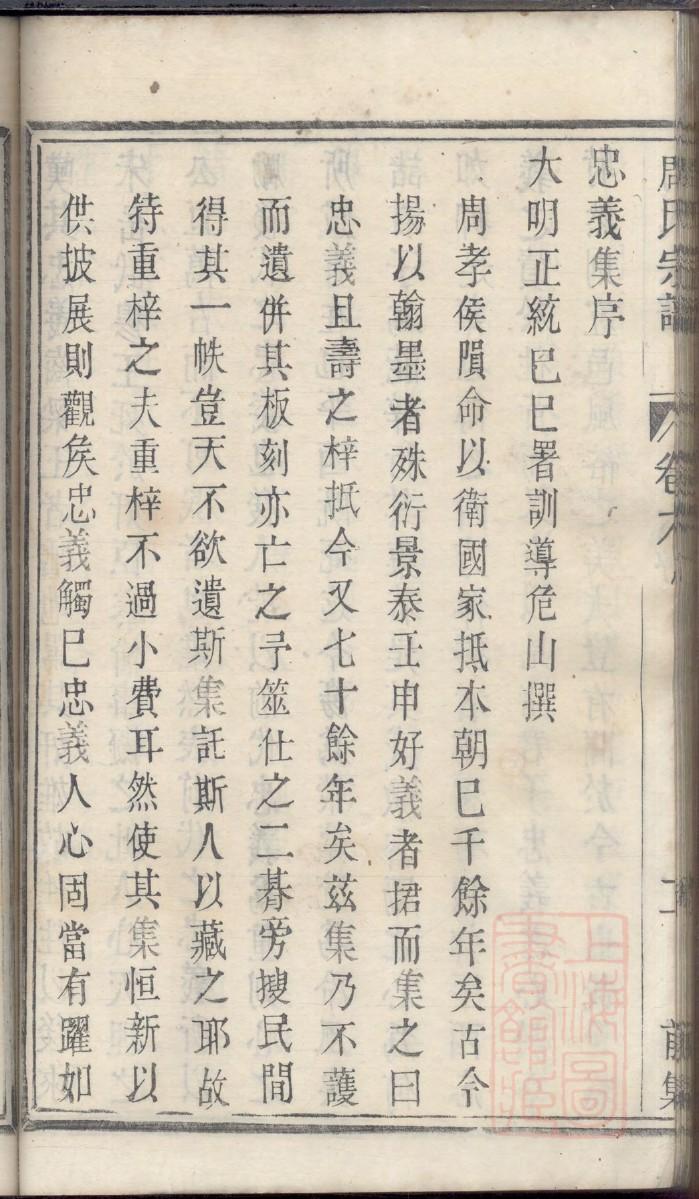 周氏宗譜
卷六
前集
忠義集序
大明正統巳巳署訓導危山撰
周孝侯隕命以衛國家抵本朝巳千餘年矣古今
揚以翰墨者殊衍景泰壬申好義者捃而集之曰
忠義且壽之梓抵今又七十餘年矣茲集乃不蒦
而遺併其板刻亦亡之予筮仕之二朞旁搜民間
得其一帙豈天不欲遺斯集託斯人以藏之耶故
特重梓之夫重梓不過小費耳然使其集恒新以
供披展則觀矣忠義觸巳忠義人心固當有躍如
上海圖書館藏